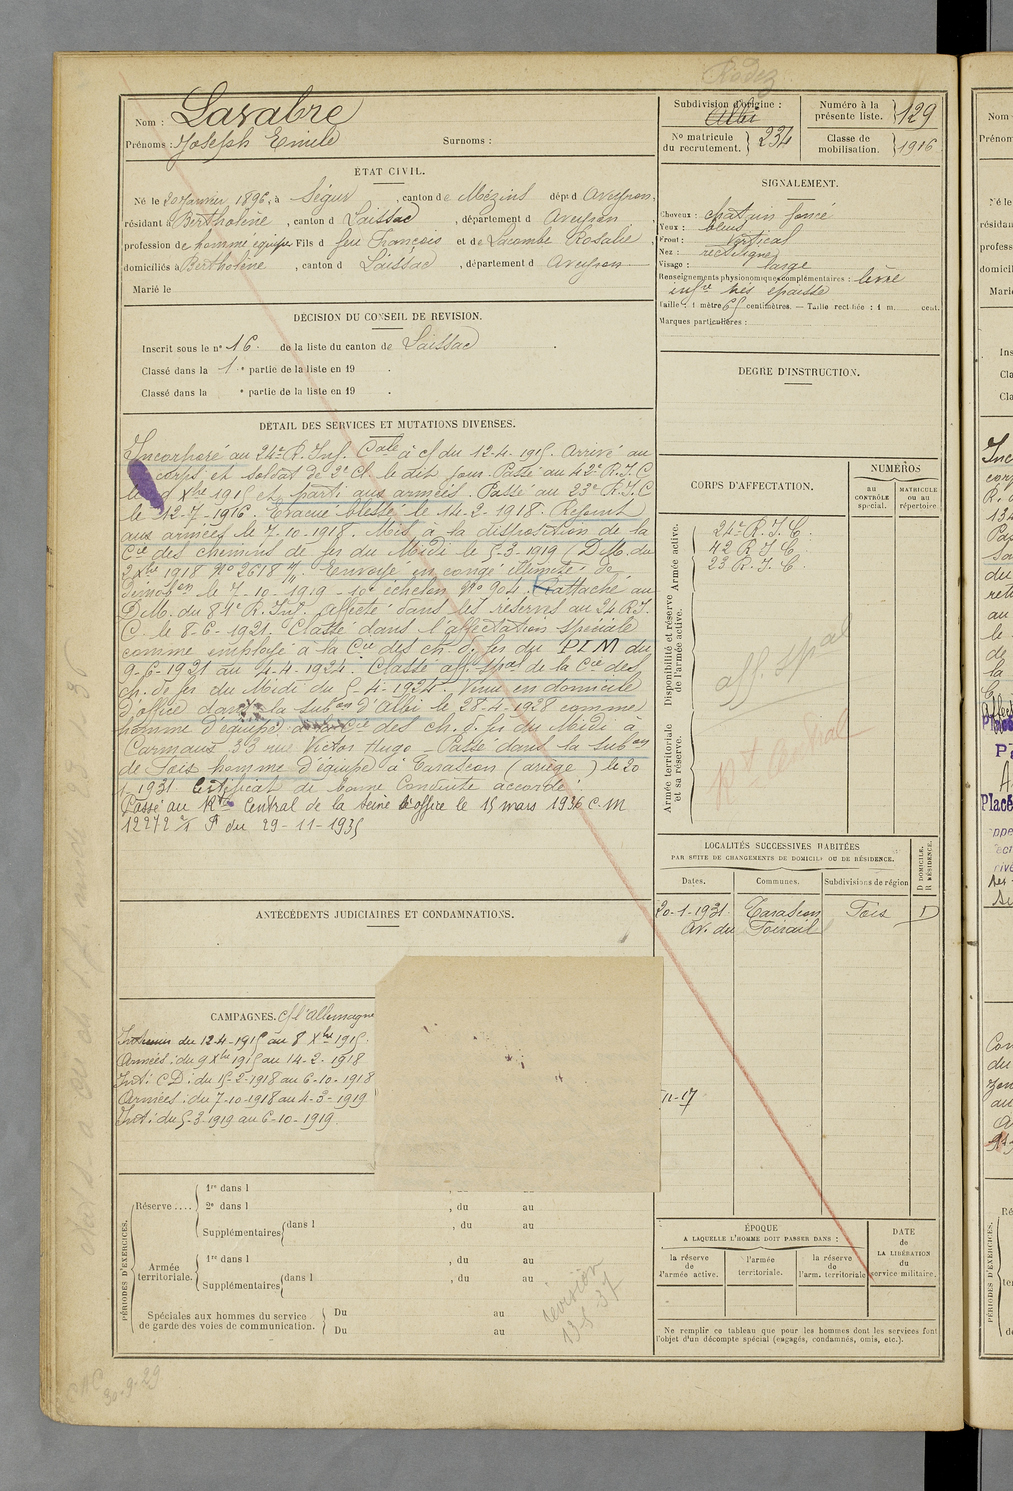 Rodez
Nom : Lavabre
Prénoms : Joseph Emile Surnoms :
Subdivision d'origine :
Albi
Numéro à la présente liste. 129
No matricule du recrutement. 234
Classe de mobilisation. 1916
ÉTAT CIVIL.
Né le 20 Janvier 1896, à Ségur, canton de Vézins dépt d Aveyron,
résidant à Bertholène, canton d Laissac, département d Aveyron,
profession de homme équipe Fils d feu François et de Lacombe Rosalie,
domiciliés à Bertholène, canton d Laissac, département d Aveyron
Marié le
SIGNALEMENT.
Cheveux : chatain foncé
Yeux : bleus
Front : vertical
Nez : rectiligne
Visage : large
Renseignements physionomiques complémentaires : lèvre
infre très épaisse
Taille : 1 mètre 65 centimètres. — Taille rectifiée : 1 m. cent.
Marques particulières :
DÉCISION DU CONSEIL DE REVISION.
Inscrit sous le no 16. de la liste du canton de Laissac
Classé dans la 1e partie de la liste en 19 .
Classé dans la e partie de la liste en 19 .
DEGRÉ D'INSTRUCTION.
DÉTAIL DES SERVICES ET MUTATIONS DIVERSES.
Incorporé au 24e R. Inf. Cale à c/ du 12-4-1915. Arrivé au
corps et soldat de 2e Cl. le dit jour. Passé au 42e R.I.C
le 9 Xbre 1915 et parti aux armées. Passé au 23e R.I.C
le 12-7-1916. Evacué blessé le 14-2-1918. Rejoint
aux armées le 7-10-1918. Mis à la disposition de la
Cie des chemins de fer du Midi le 5-3-1919 (D.M. du
2 Xbre 1918 No 2618 Envoyé en congé illimité de
démobon le 7-10-1919 - 10e échelon No 904. Rattaché au
D.M. du 81e R. Inf. Affecté dans les réserves au 24 R.I.
C. le 8-6-1921. Classé dans l'affectation spéciale
comme employé à la Cie des ch. d. fer du PLM du
9-6-1921 au 4-4-1924. Classé aff. spal de la Cie des
ch. de fer du Midi du 5-4-1924. Venu en domicile
d'office dans la subon d'Albi le 28-4-1928 comme
homme d'équipe à la Cie des ch. d. fer du Midi à
Carmaux 33 rue Victor Hugo - Passé dans la subon
de Foix homme d'équipe à Tarascon (ariège) le 20
1-1931 Certificat de bonne Conduite accordé
Passé au Rt Central de la Seine d'office le 15 mars 1936 C.M
12272 du 29-11-1935
CORPS D'AFFECTATION.
NUMÉROS
au CONTRÔLE spécial.
MATRICULE ou au répertoire.
Armée active.
24e R.I.C.
42 R.I.C.
23 R.I.C.
Disponibilité et réserve de l'armée active.
aff. spal
Armée territoriale et sa réserve.
Rt Central
LOCALITÉS SUCCESSIVES HABITÉES
PAR SUITE DE CHANGEMENTS DE DOMICILE OU DE RÉSIDENCE.
D DOMICILE. R RÉSIDENCE.
Dates. Communes. Subdivisions de région
20-1-1931 Tarascon Foix D
Av. du Foirail
ANTÉCÉDENTS JUDICIAIRES ET CONDAMNATIONS.
CAMPAGNES. C/ l'Allemagne
Intérieur du 12-4-1915 au 8 Xbre 1915.
Armées : du 9 Xbre 1915 au 14-2-1918
Int : CD : du 15-2-1918 au 6-10-1918
Armées : du 7-10-1918 au 4-3-1919
Int : du 5-3-1919 au 6-10-1919
11-17
PÉRIODES D'EXERCICES.
Réserve....
1re dans l , du au
2e dans l , du au
Supplémentaires dans l , du au
Armée territoriale.
1re dans l , du au
Supplémentaires dans l , du au
Spéciales aux hommes du service de garde des voies de communication.
Du au
Du au
revision
13-5-37
ÉPOQUE
A LAQUELLE L'HOMME DOIT PASSER DANS :
la réserve de l'armée active.
l'armée territoriale.
la réserve de l'arm. territoriale
DATE de LA LIBÉRATION du service militaire.
Ne remplir ce tableau que pour les hommes dont les services font
l'objet d'un décompte spécial (engagés, condamnés, omis, etc.).
30-9-29